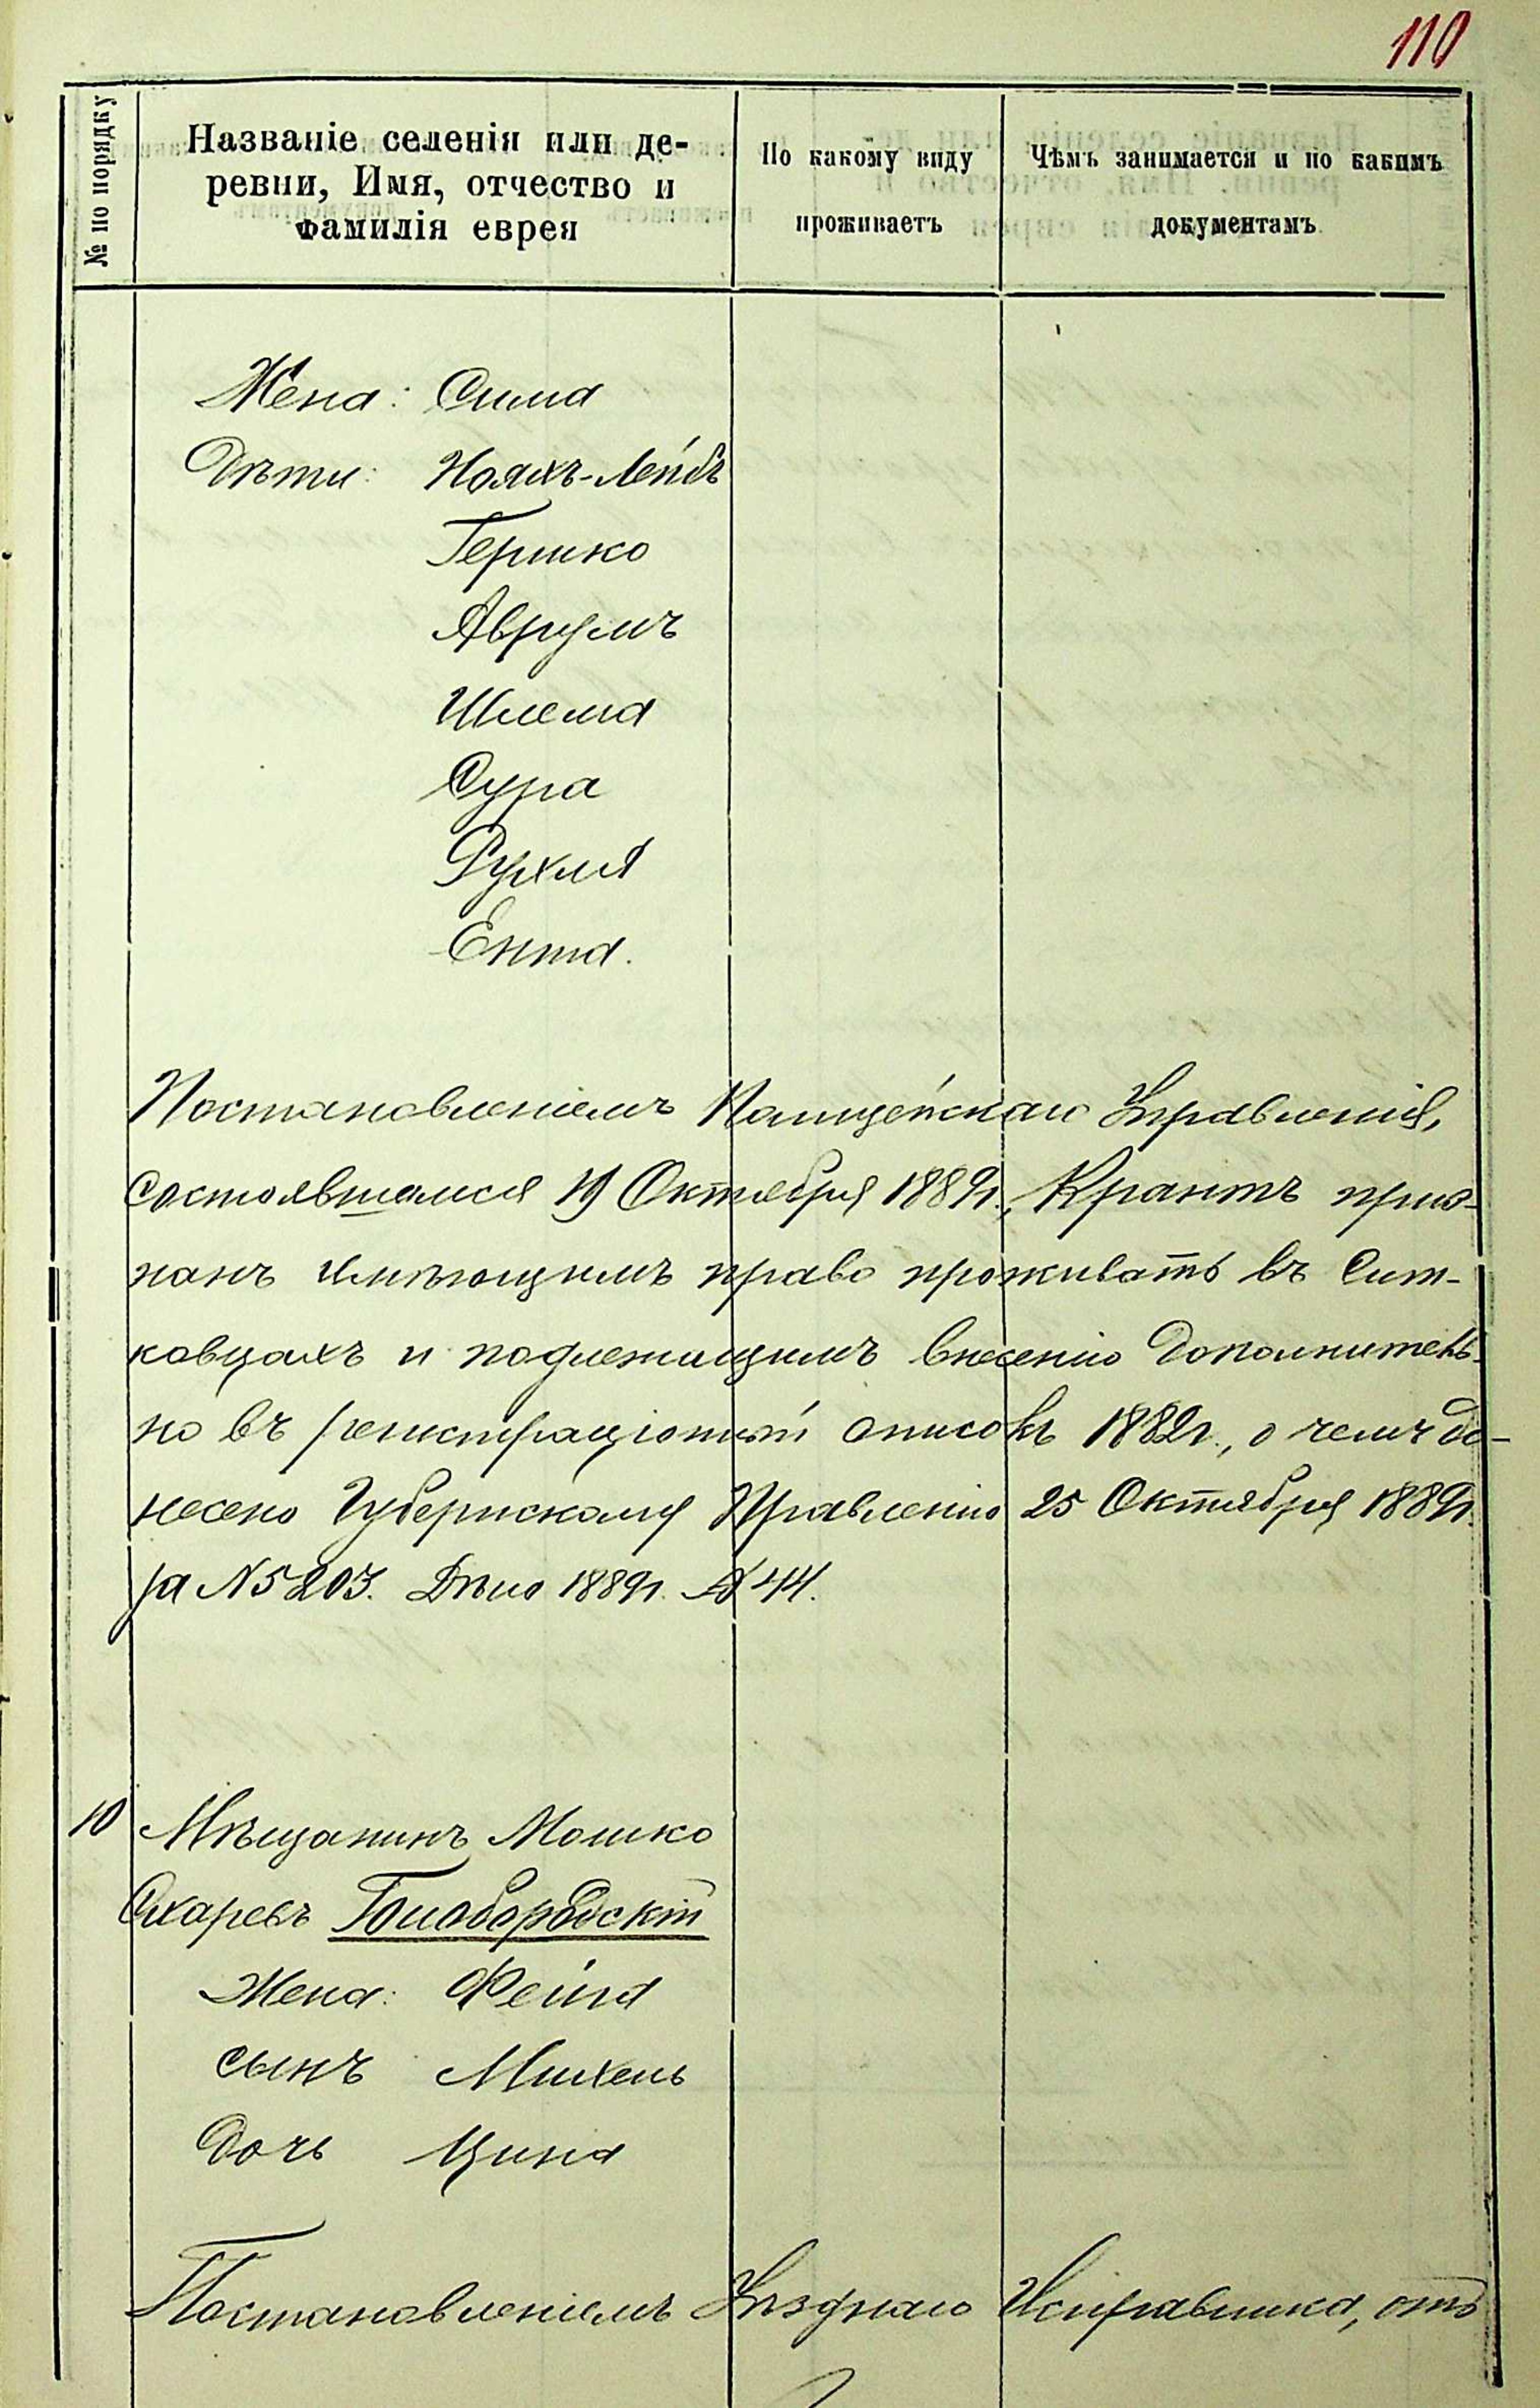 110
№ по порядку
Названіе селенія или де-
ревни, Имя, отчество и
фамилія еврея
По какому виду
проживаетъ
Чѣмъ занимается и по какимъ
документамъ
Жена: Сима
Дѣти: Нояхъ-Лейбъ
Гершко
Аврумъ
Шлема
Сура
Рухля
Ента.
Постановленіемъ Полицейскаго Управленія,
состоявшемся 19 Октября 1889г., Крантъ приз-
нанъ имѣющимъ право проживать въ Сит-
ковцахъ и подлежащимъ внесенію дополнитель-
но въ регистраціонный списокъ 1882г., о чемъ до-
несено Губернскому Правленію 25 Октября 1889г.
за N 5203. Дѣло 1889г. № 44.
10 Мѣщанинъ Мошко
Сухаревъ Голобородскій
Жена: Фейга
сынъ Михель
дочь Ципа
Постановленіемъ Уѣзднаго Исправника, отъ